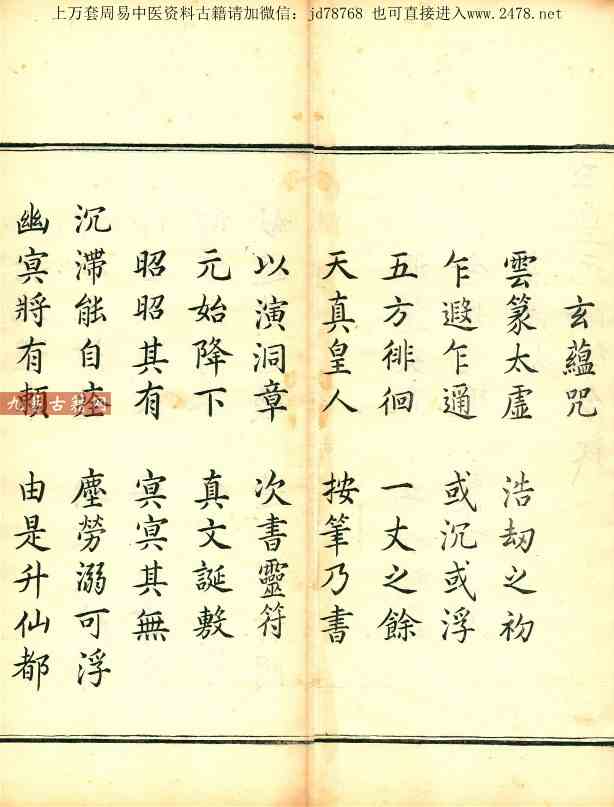 上万套周易中医资料古籍请加微信：jd78768 也可直接进入www.2478.net
玄蘊咒
雲篆太虛 浩刼之初
乍遐乍邇 或沉或浮
五方徘徊 一丈之餘
天真皇人 按筆乃書
以演洞章 次書靈符
元始降下 真文誕敷
昭昭其有 冥冥其無
沉滯能自痊 塵勞溺可浮
幽冥將有賴 由是升仙都